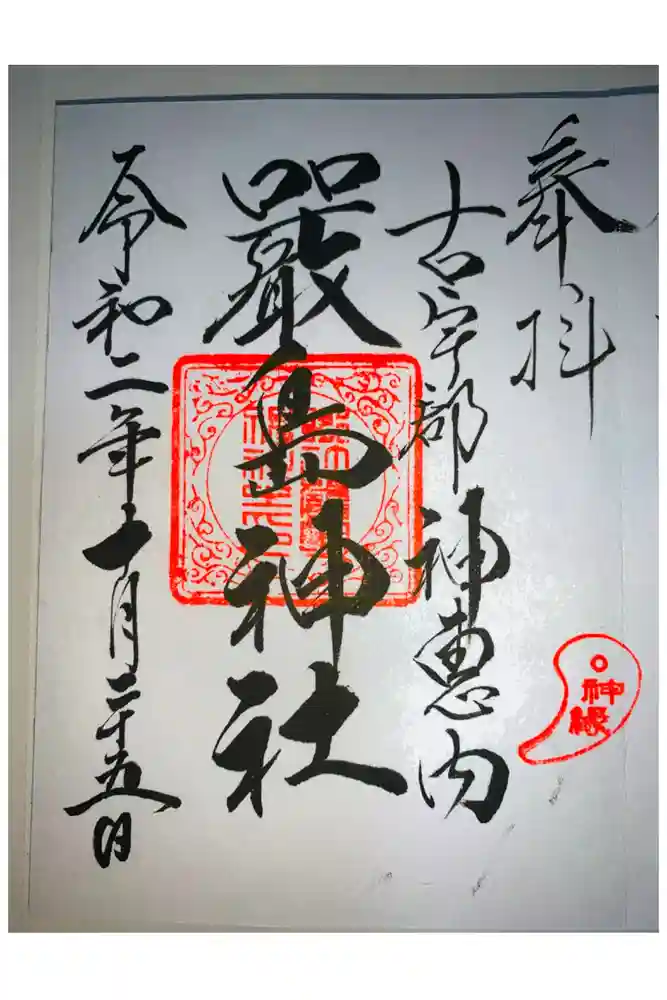 奉拝
古宇郡 神恵内
嚴島神社
令和二年十月二十五日
神縁